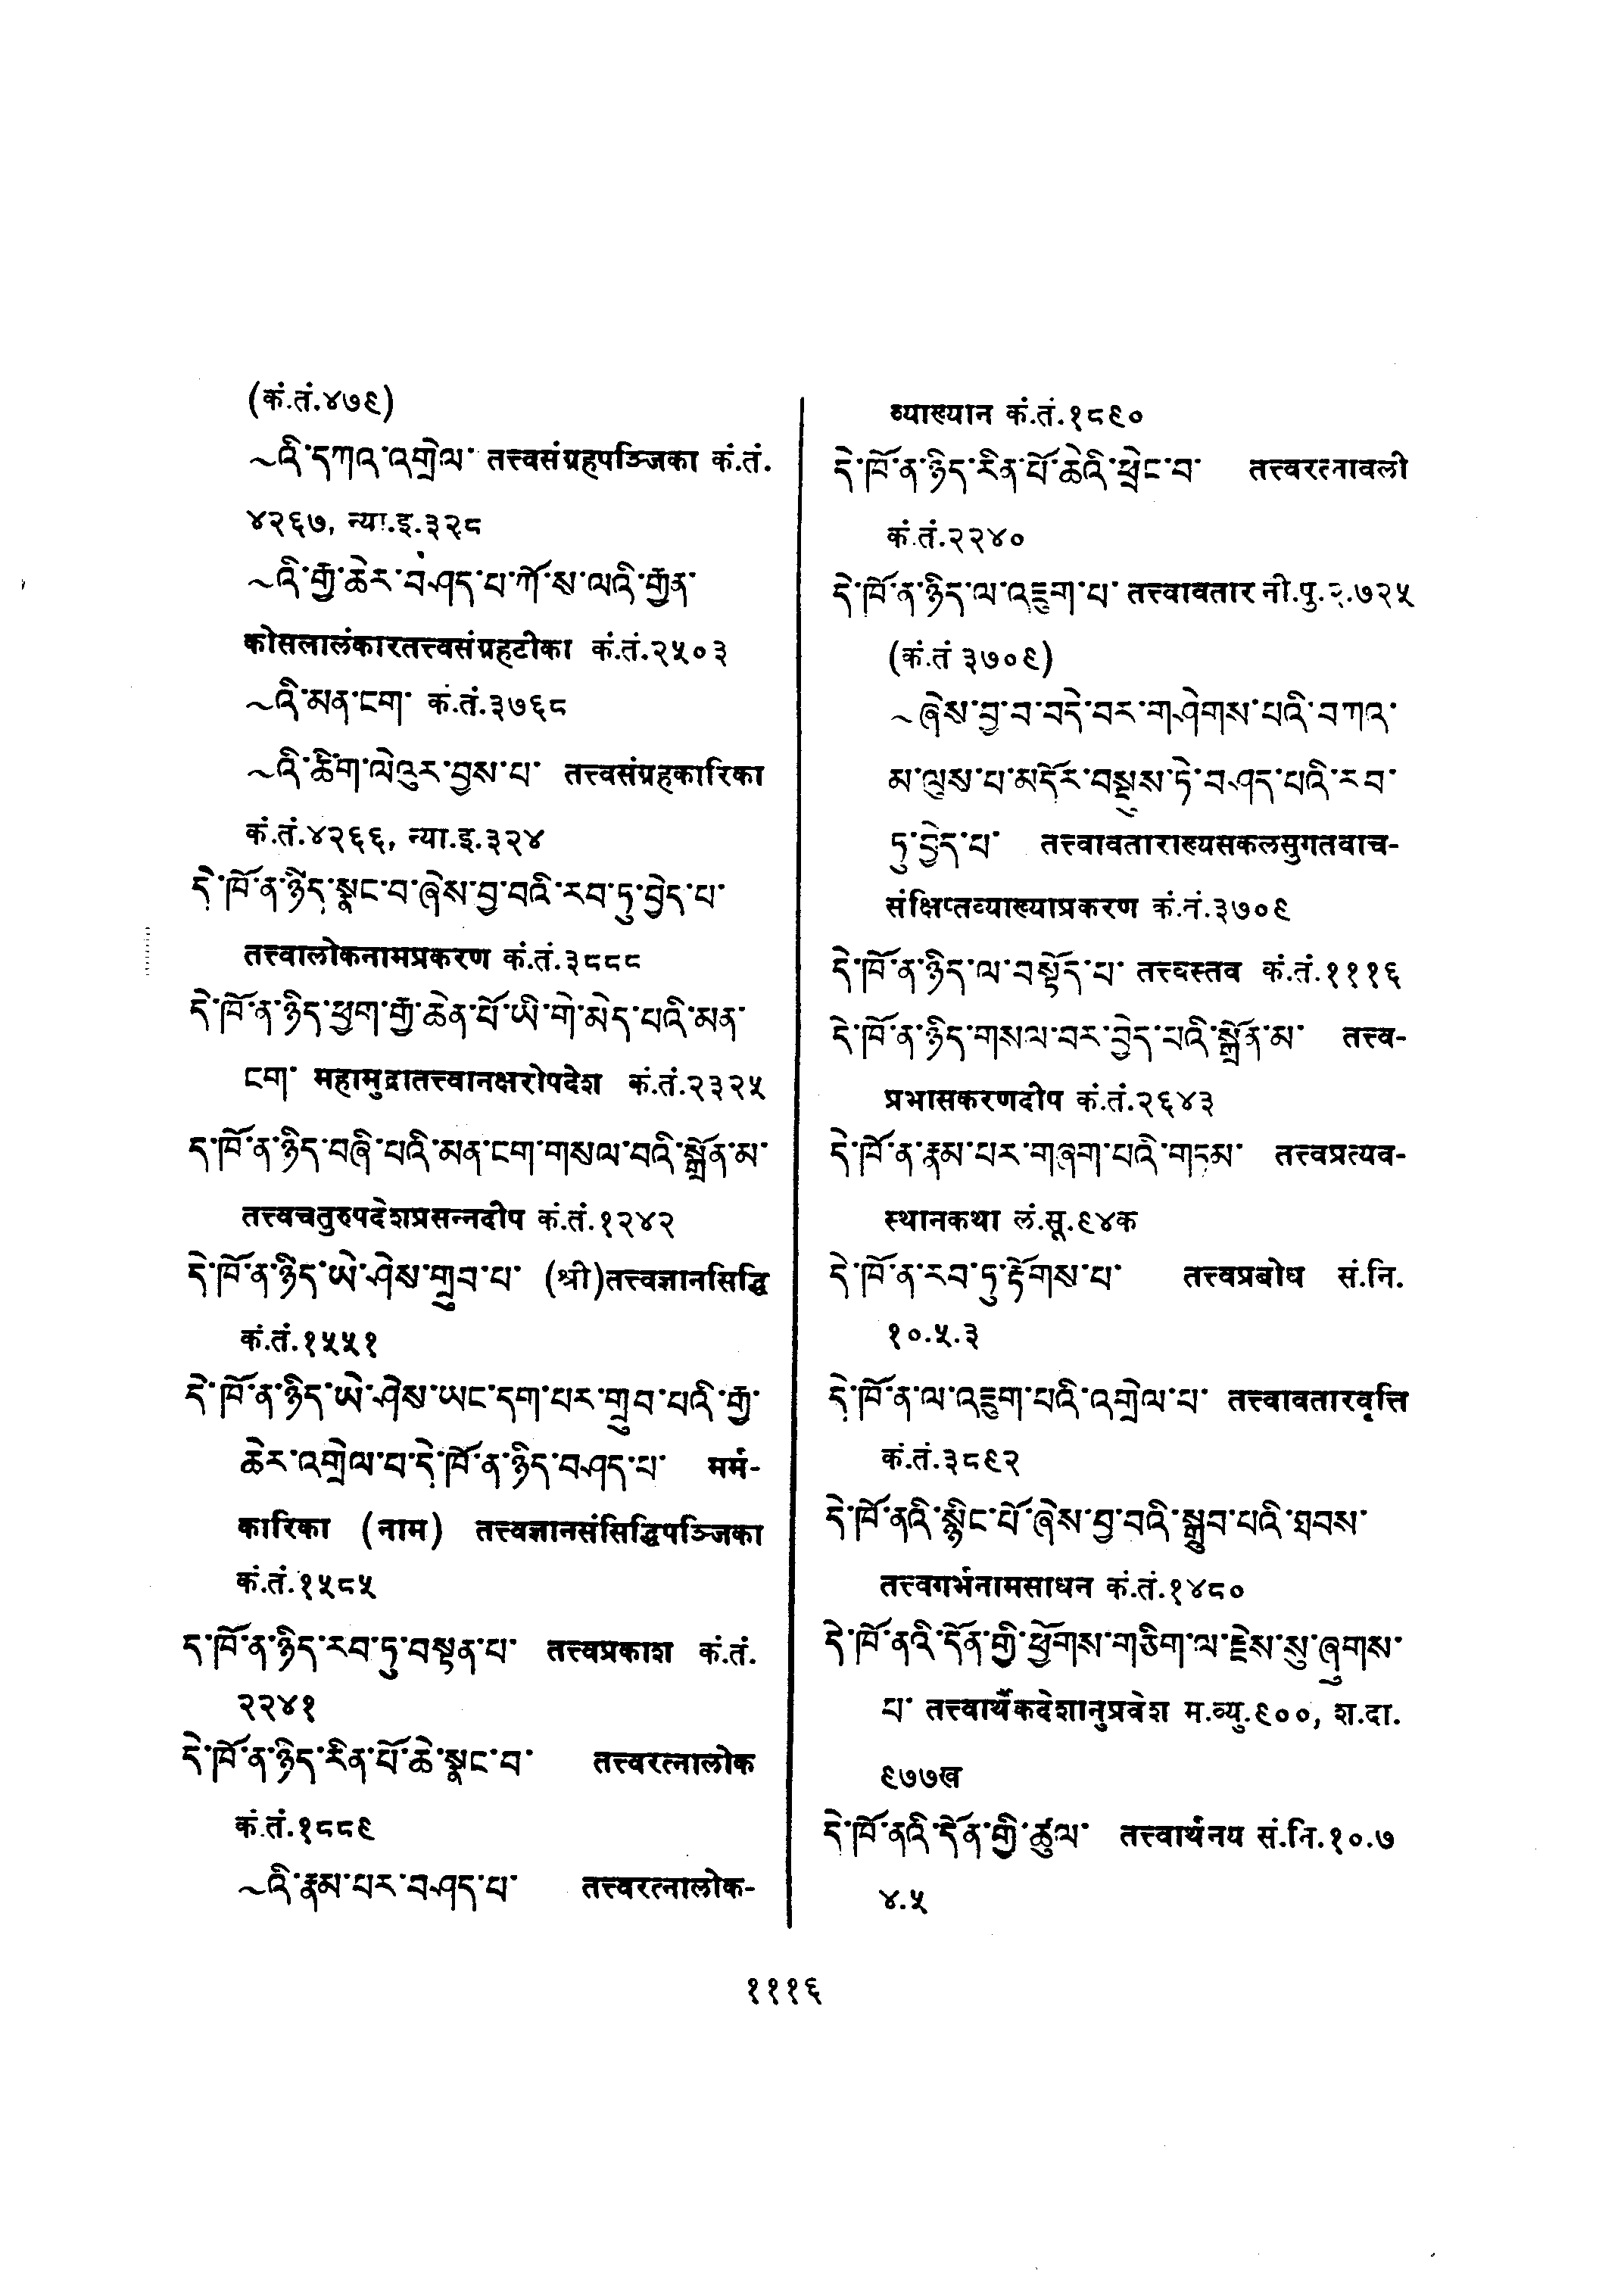 (कं.तं.४७९)
~འི་དཀའ་འགྲེལ་ तत्त्वसंग्रहपञ्जिका कं.तं.
४२६७, न्या.इ.३२८
~འི་རྒྱ་ཆེར་བཤད་པ་ཀོ་ས་ལའི་རྒྱན་
कोसलालंकारतत्त्वसंग्रहटीका कं.तं.२५०३
~འི་མན་ངག་ कं.तं.३७६८
~འི་ཚིག་ལེའུར་བྱས་པ་ तत्त्वसंग्रहकारिका
कं.तं.४२६६, न्या.इ.३२४
དེ་ཁོ་ན་ཉིད་སྣང་བ་ཞེས་བྱ་བའི་རབ་ཏུ་བྱེད་པ་
तत्त्वालोकनामप्रकरण कं.तं.३८८८
དེ་ཁོ་ན་ཉིད་ཕྱག་རྒྱ་ཆེན་པོ་ཡི་གེ་མེད་པའི་མན་
ངག་ महामुद्रातत्त्वानक्षरोपदेश कं.तं.२३२५
ད་ཁོ་ན་ཉིད་བཞི་པའི་མན་ངག་གསལ་བའི་སྒྲོན་མ་
तत्त्वचतुरुपदेशप्रसन्नदीप कं.तं.१२४२
དེ་ཁོ་ན་ཉིད་ཡེ་ཤེས་གྲུབ་པ་ (श्री)तत्त्वज्ञानसिद्धि
कं.तं.१५५१
དེ་ཁོ་ན་ཉིད་ཡེ་ཤེས་ཡང་དག་པར་གྲུབ་པའི་རྒྱ་
ཆེར་འགྲེལ་པ་དེ་ཁོ་ན་ཉིད་བཤད་པ་ मर्म-
कारिका (नाम) तत्त्वज्ञानसंसिद्धिपञ्जिका
कं.तं.१५८५
ད་ཁོ་ན་ཉིད་རབ་ཏུ་བསྟན་པ་ तत्त्वप्रकाश कं.तं.
२२४१
དེ་ཁོ་ན་ཉིད་རིན་པོ་ཆེ་སྣང་བ་ तत्त्वरत्नालोक
कं.तं.१८८९
~འི་རྣམ་པར་བཤད་པ་ तत्त्वरत्नालोक-
व्याख्यान कं.तं.१८९०
དེ་ཁོ་ན་ཉིད་རིན་པོ་ཆེའི་ཕྲེང་བ་ तत्त्वरत्नावली
कं.तं.२२४०
དེ་ཁོ་ན་ཉིད་ལ་འཇུག་པ་ तत्त्वावतार नी.पु.२.७२५
(कं.तं ३७०९)
~ཞེས་བྱ་བ་བདེ་བར་གཤེགས་པའི་བཀའ་
མ་ལུས་པ་མདོར་བསྡུས་ཏེ་བཤད་པའི་རབ་
ཏུ་བྱེད་པ་ तत्त्वावताराख्यसकलसुगतवाच-
संक्षिप्तव्याख्याप्रकरण कं.तं.३७०९
དེ་ཁོ་ན་ཉིད་ལ་བསྟོད་པ་ तत्त्वस्तव कं.तं.१११६
དེ་ཁོ་ན་ཉིད་གསལ་བར་བྱེད་པའི་སྒྲོན་མ་ तत्त्व-
प्रभासकरणदीप कं.तं.२६४३
དེ་ཁོ་ན་རྣམ་པར་གཞག་པའི་གཏམ་ तत्त्वप्रत्यव-
स्थानकथा लं.सू.९४क
དེ་ཁོ་ན་རབ་ཏུ་རྟོགས་པ་ तत्त्वप्रबोध सं.नि.
१०.५.३
དེ་ཁོ་ན་ལ་འཇུག་པའི་འགྲེལ་པ་ तत्त्वावतारवृत्ति
कं.तं.३८९२
དེ་ཁོ་ནའི་སྙིང་པོ་ཞེས་བྱ་བའི་སྒྲུབ་པའི་ཐབས་
तत्त्वगर्भनामसाधन कं.तं.१४८०
དེ་ཁོ་ནའི་དོན་གྱི་ཕྱོགས་གཅིག་ལ་རྗེས་སུ་ཞུགས་
པ་ तत्त्वार्थैकदेशानुप्रवेश म.व्यु.९००, श.दा.
९७७ख
དེ་ཁོ་ནའི་དོན་གྱི་ཚུལ་ तत्त्वार्थनय सं.नि.१०.७
४.५
१११६